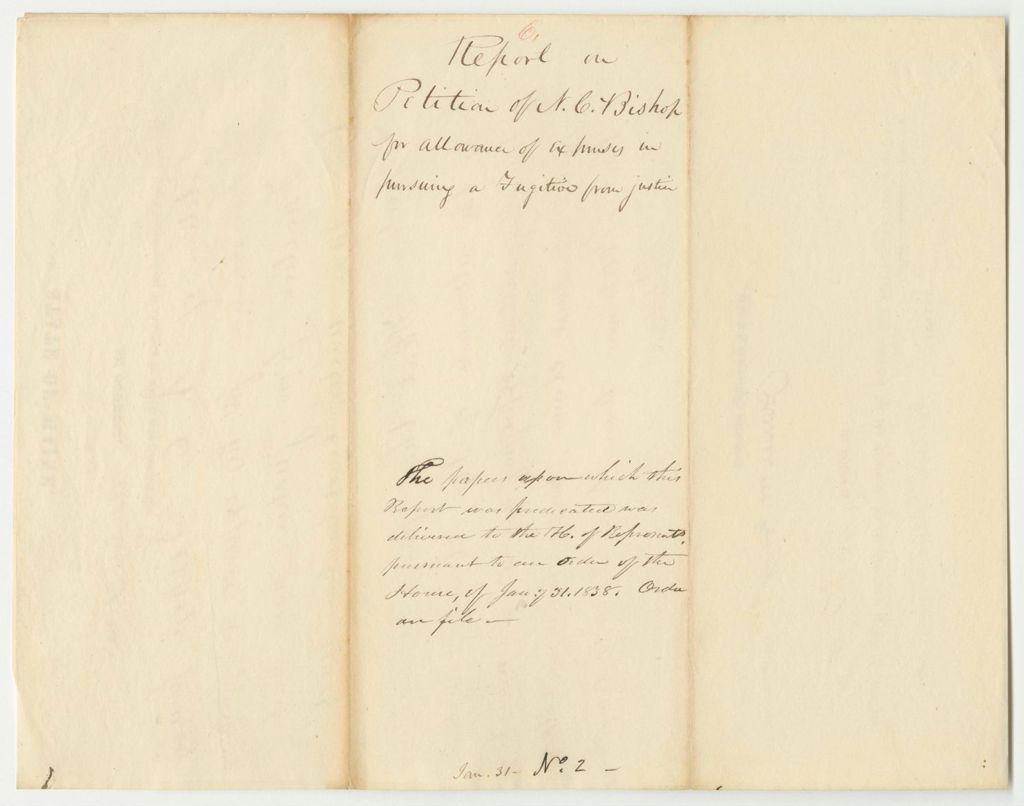 6.
Report on
Petition of N. C. Bishop
for allowance of expenses in
pursuing a Fugitive from justice
The papers upon which this
Report was predicated was
delivered to the H. of Represents.
pursuant to an order of the
House, of Jany 31. 1838. Order
on file —
Jan. 31 — No. 2 —